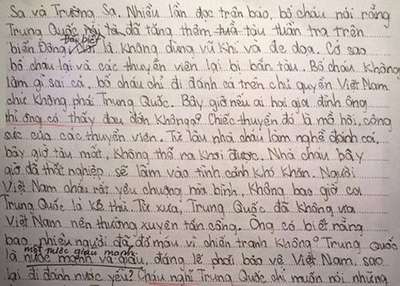 Sa và Trường Sa. Nhiều lần đọc trên báo, bố cháu nói rằng
Trung Quốc đã tăng thêm tàu tuần tra trên
biển Đông, là không dùng vũ khí và đe doạ. Cớ sao
bố cháu lại và các thuyền viên lại bị bắn tàu. Bố cháu không
làm gì sai cả, bố cháu chỉ đi đánh cá trên chủ quyền Việt Nam
chứ không phải Trung Quốc. Bây giờ nếu ai hại gia đình ông
thì ông có thấy đau đớn không? Chiếc thuyền đó là mồ hôi, công
sức của các thuyền viên. Từ lâu nhà cháu làm nghề đánh cá,
bây giờ tàu mất, không thể ra khơi được. Nhà cháu bây
giờ đã thất nghiệp, sẽ lâm vào tình cảnh khó khăn. Người
Việt Nam cháu rất yêu chuộng hoà bình, không bao giờ coi
Trung Quốc là kẻ thù. Từ xưa, Trung Quốc đã không ưa
Việt Nam nên thương xuyên tấn công. Ông có biết rằng
bao nhiêu người đã đổ máu vì chiến tranh không? Trung Quốc
là một nước giàu mạnh, đáng lẽ phải bảo vệ Việt Nam, sao
lại đi đánh nước yếu? Cháu nghĩ Trung Quốc chỉ muốn nói những